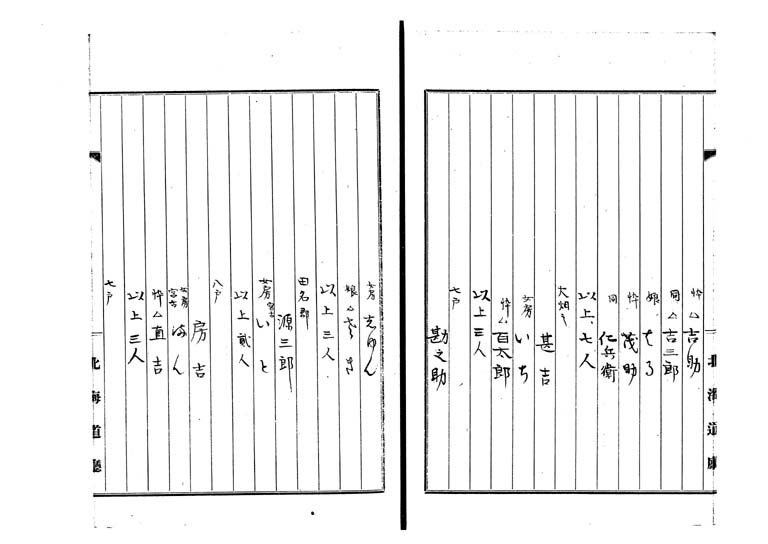 忰△吉助
同△吉三郎
娘 はる
忰 茂助
同 仁兵衛
以上、七人
大畑
甚吉
女房 いち
忰△百太郎
以上三人
七戸
勘之助
北海道廳
娘△
以上三人
田名部
源三郎
女房 いと
以上貮人
八戸
房吉
女房
忰△直吉
以上三人
七戸
北海道廳